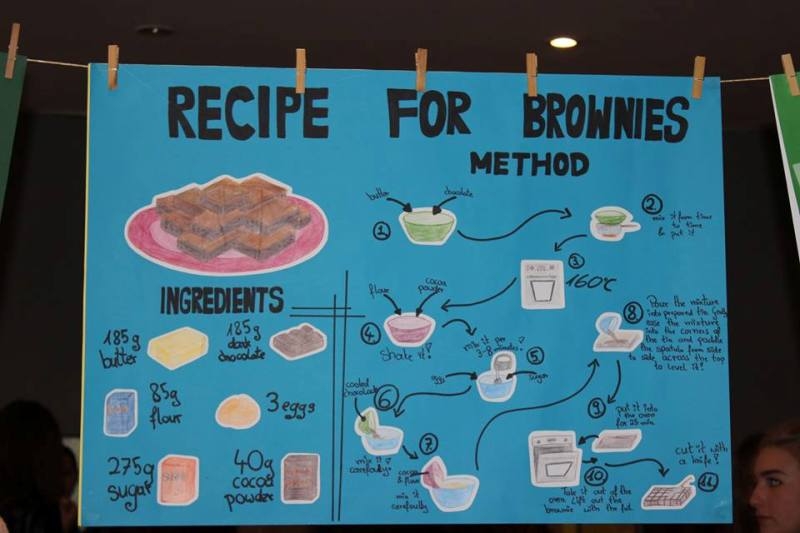 RECIPE FOR BROWNIES
METHOD
INGREDIENTS
185g
butter
185g
dark
chocolate
85g
flour
3 eggs
275g
sugar
40g
cocoa
powder
butter
chocolate
1
2
mix it from time
to time
& put it
3
160°C
flour
cocoa
powder
4
Shake it!
mix it per
3-8 minutes!
5
egg
sugar
cooled
chocolate
6
mix it
carefouly
7
cocoa
& flour
mix it
carefoully
8
Pour the mixture
into prepared tin,
ease the mixture
into the corners of
the tin and paddle
the spatula from side
to side across the top
to level it!
9
put it into
the oven
for 25 min.
10
Take it out of the
oven. Lift out the
brownie with the foil.
cut it with
a knife!
11